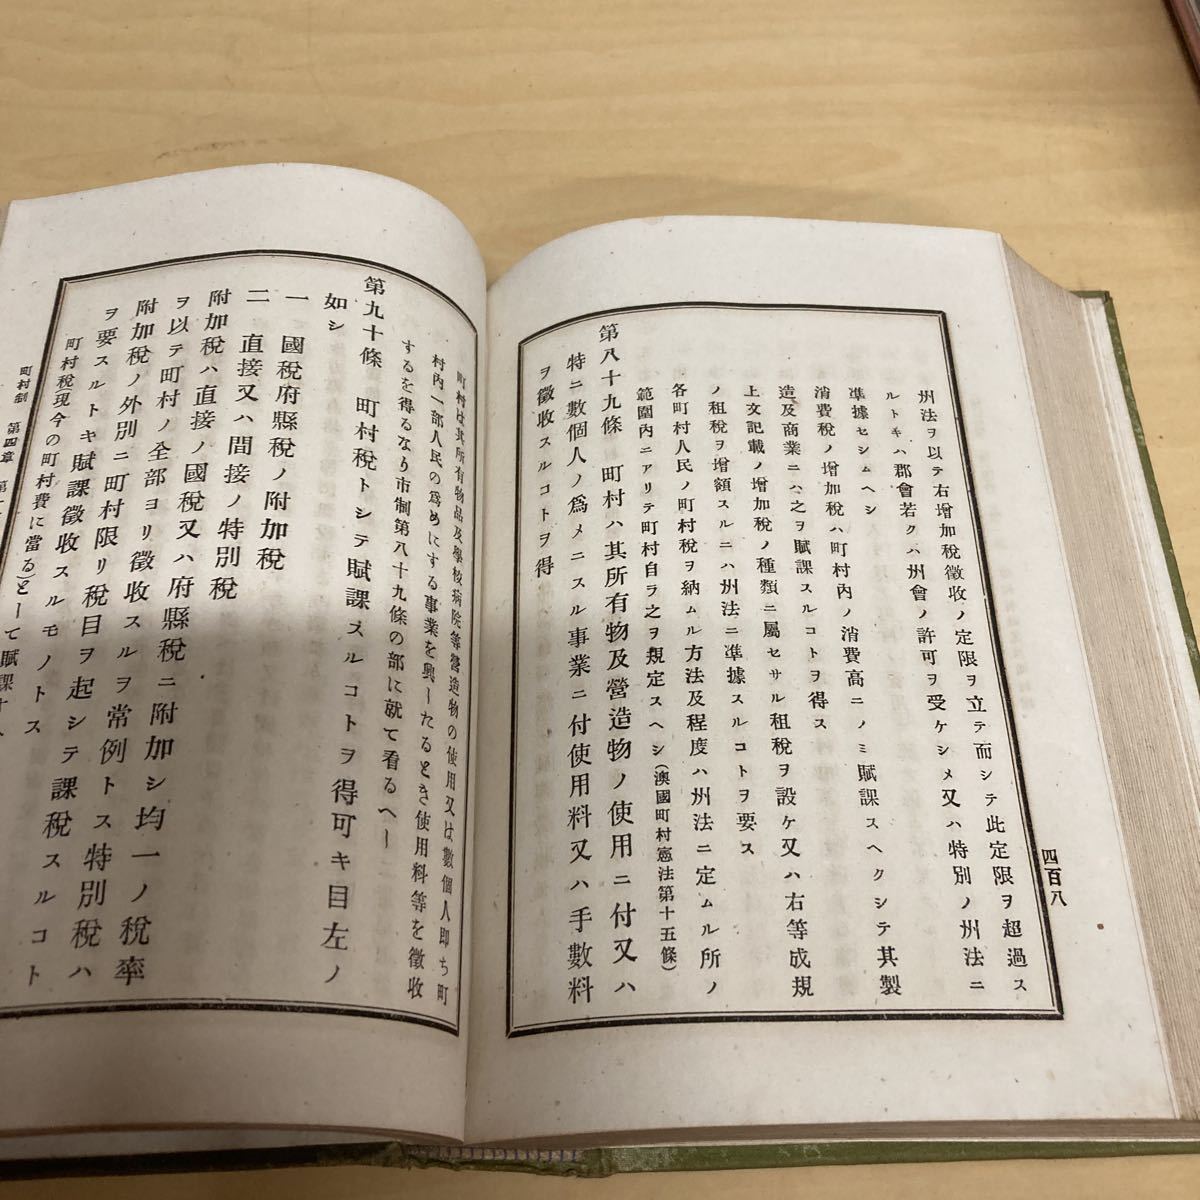 四百八
州法ヲ以テ右増加稅徵收ノ定限ヲ立テ而シテ此定限ヲ超過ス
ルトキハ郡會若クハ州會ノ許可ヲ受ケシメ又ハ特別ノ州法ニ
準據セシムヘシ
消費稅ノ增加稅ハ町村內ノ消費高ニノミ賦課スヘクシテ其製
造及商業ニハ之ヲ賦課スルコトヲ得ス
上文記載ノ增加稅ノ種類ニ屬セサル租稅ヲ設ケ又ハ右等成規
ノ租稅ヲ增額スルニハ州法ニ準據スルコトヲ要ス
各町村人民ノ町村稅ヲ納ムル方法及程度ハ州法ニ定ムル所ノ
範圍內ニアリテ町村自ラ之ヲ規定スヘシ(澳國町村憲法第十五條)
第八十九條 町村ハ其所有物及營造物ノ使用ニ付又ハ
特ニ數個人ノ爲メニスル事業ニ付使用料又ハ手數料
ヲ徵收スルコトヲ得
町村は其所有物品及學校病院等營造物の使用又は數個人即ち町
村內一部人民の爲めにする事業を興したるとき使用料等を徵收
するを得るなり市制第八十九條の部に就て看るへし
第九十條 町村稅トシテ賦課スルコトヲ得可キ目左ノ
如シ
一 國稅府縣稅ノ附加稅
二 直接又ハ間接ノ特別稅
附加稅ハ直接ノ國稅又ハ府縣稅ニ附加シ均一ノ稅率
ヲ以テ町村ノ全部ヨリ徵收スルヲ常例トス特別稅ハ
附加稅ノ外別ニ町村限リ稅目ヲ起シテ課稅スルコト
ヲ要スルトキ賦課徵收スルモノトス
町村稅現今の町村費に當る)として賦課す
町村制 第四章 第